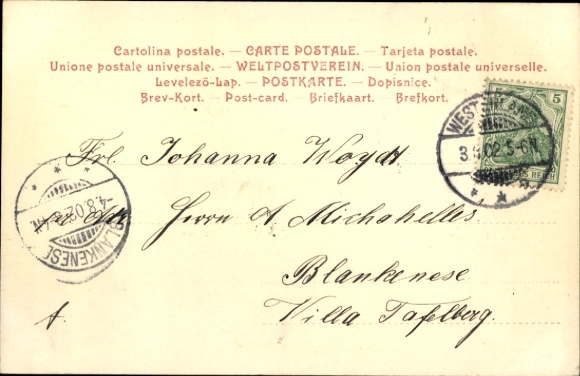 Cartolina postale. — CARTE POSTALE. — Tarjeta postale.
Unione postale universale. — WELTPOSTVEREIN. — Union postale universelle.
Levelező-Lap. — POSTKARTE. — Dopisnice.
Brev-Kort. — Post-card. — Briefkaart. — Brefkort.
5 5
REICH
WESTERLAND
3.8.02.5-6N.
Frl. Johanna Woydt
Herrn A Michahelles
Blankenese
Villa Tafelberg.
4.8.02
BLANKENESE